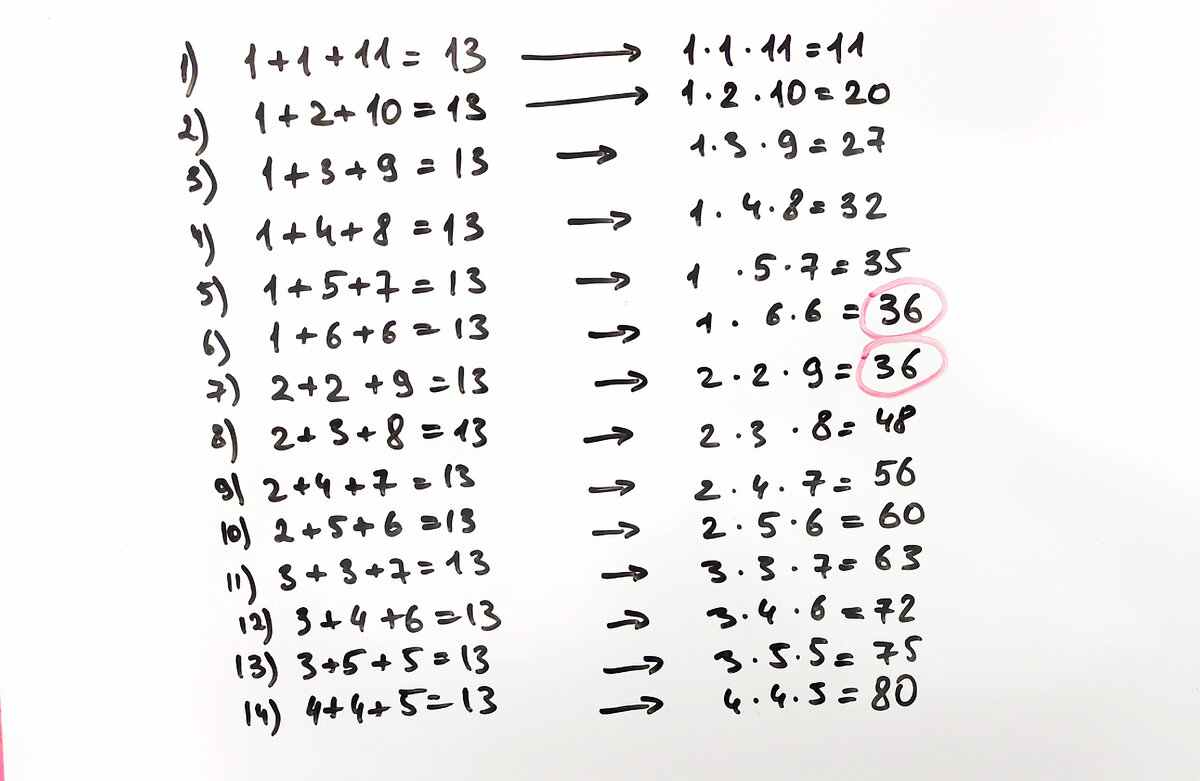 1) 1+1+11= 13 → 1·1·11=11
2) 1+2+10=13 → 1·2·10=20
3) 1+3+9=13 → 1·3·9=27
4) 1+4+8=13 → 1·4·8=32
5) 1+5+7=13 → 1·5·7=35
6) 1+6+6=13 → 1·6·6=36
7) 2+2+9=13 → 2·2·9=36
8) 2+3+8=13 → 2·3·8=48
9) 2+4+7=13 → 2·4·7=56
10) 2+5+6=13 → 2·5·6=60
11) 3+3+7=13 → 3·3·7=63
12) 3+4+6=13 → 3·4·6=72
13) 3+5+5=13 → 3·5·5=75
14) 4+4+5=13 → 4·4·5=80